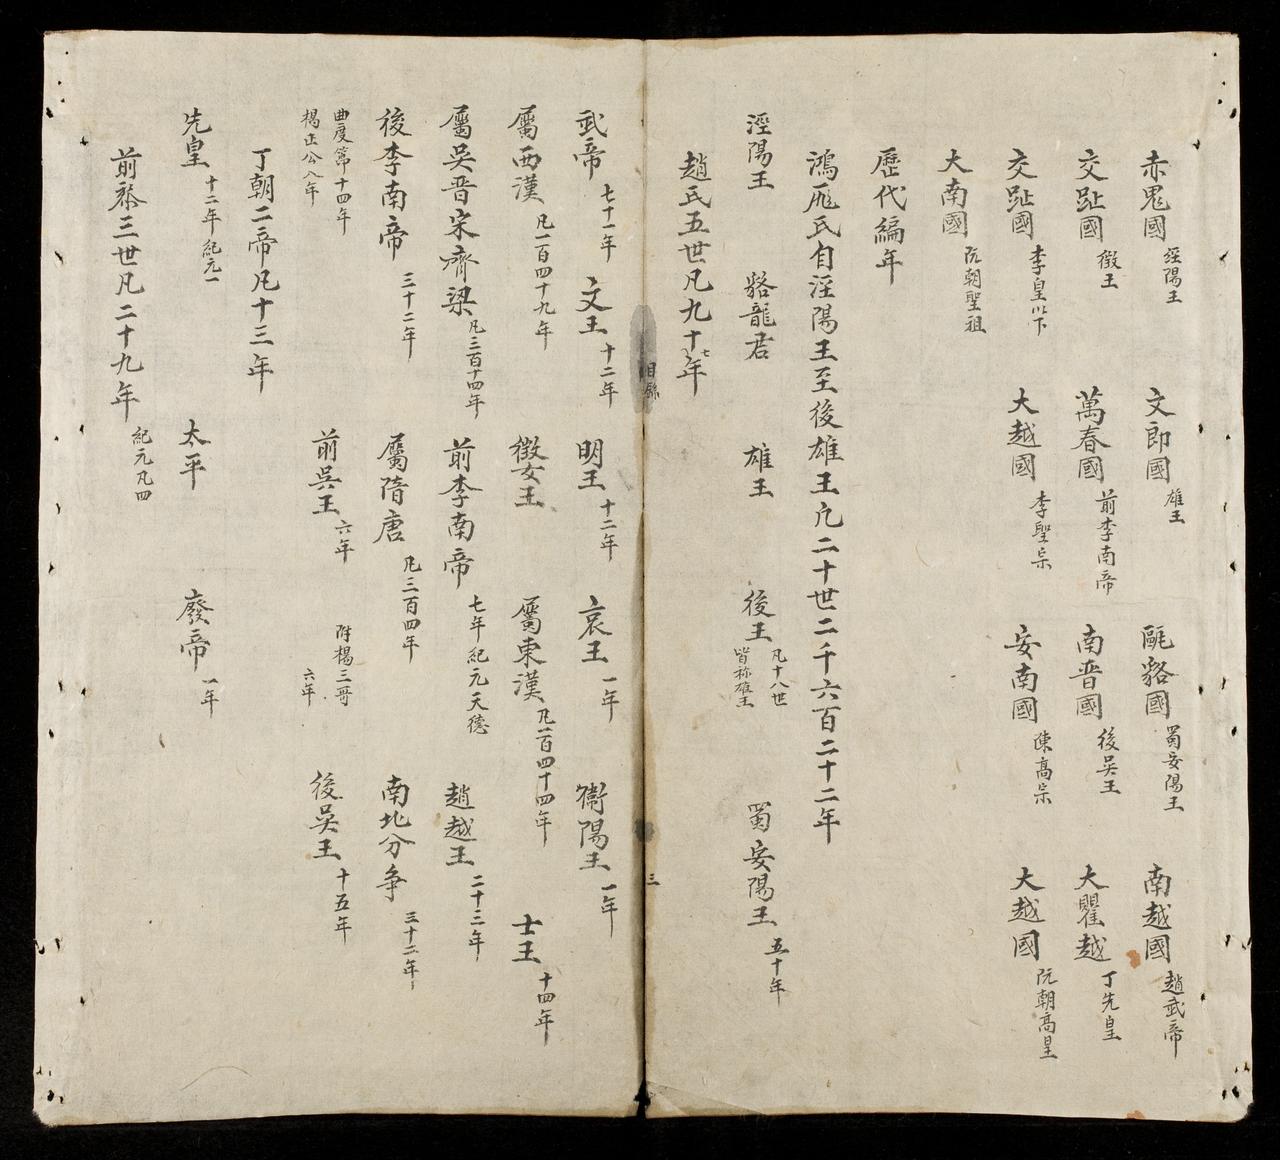 赤鬼國 經陽王 文郎國 雄王 甌貉國 蜀安陽王 南越國 趙武帝
交趾國 徵王 萬春國 前李南帝 南晋國 後吳王 大瞿越 丁先皇
交趾國 李皇以下 大越國 李聖宗 安南國 陳高宗 大越國 阮朝高皇
大南國 阮朝聖祖
歷代編年
鴻厖氏自涇陽王至後雄王凡二十世二千六百二十二年
涇陽王 貉龍君 雄王 後王 凡十八世皆称雄王 蜀安陽王 五十年
趙氏五世凡九十七年
目錄 三
武帝 七十一年 文王 十二年 明王 十二年 哀王 一年 衛陽王 一年
屬西漢 凡一百四十九年 徵女王 屬東漢 凡一百四十四年 士王 十四年
屬吳晋宋齊梁 凡三百十四年 前李南帝 七年紀元天德 趙越王 二十三年
後李南帝 三十二年 屬隋唐 凡三百四年 南北分争 三十二年
曲度第十四年 楊正公八年 前吳王 六年 附楊三哥六年 後吳王 十五年
丁朝二帝凡十三年
先皇 十二年紀元一 太平 廢帝 一年
前黎三世凡二十九年 紀元凡四